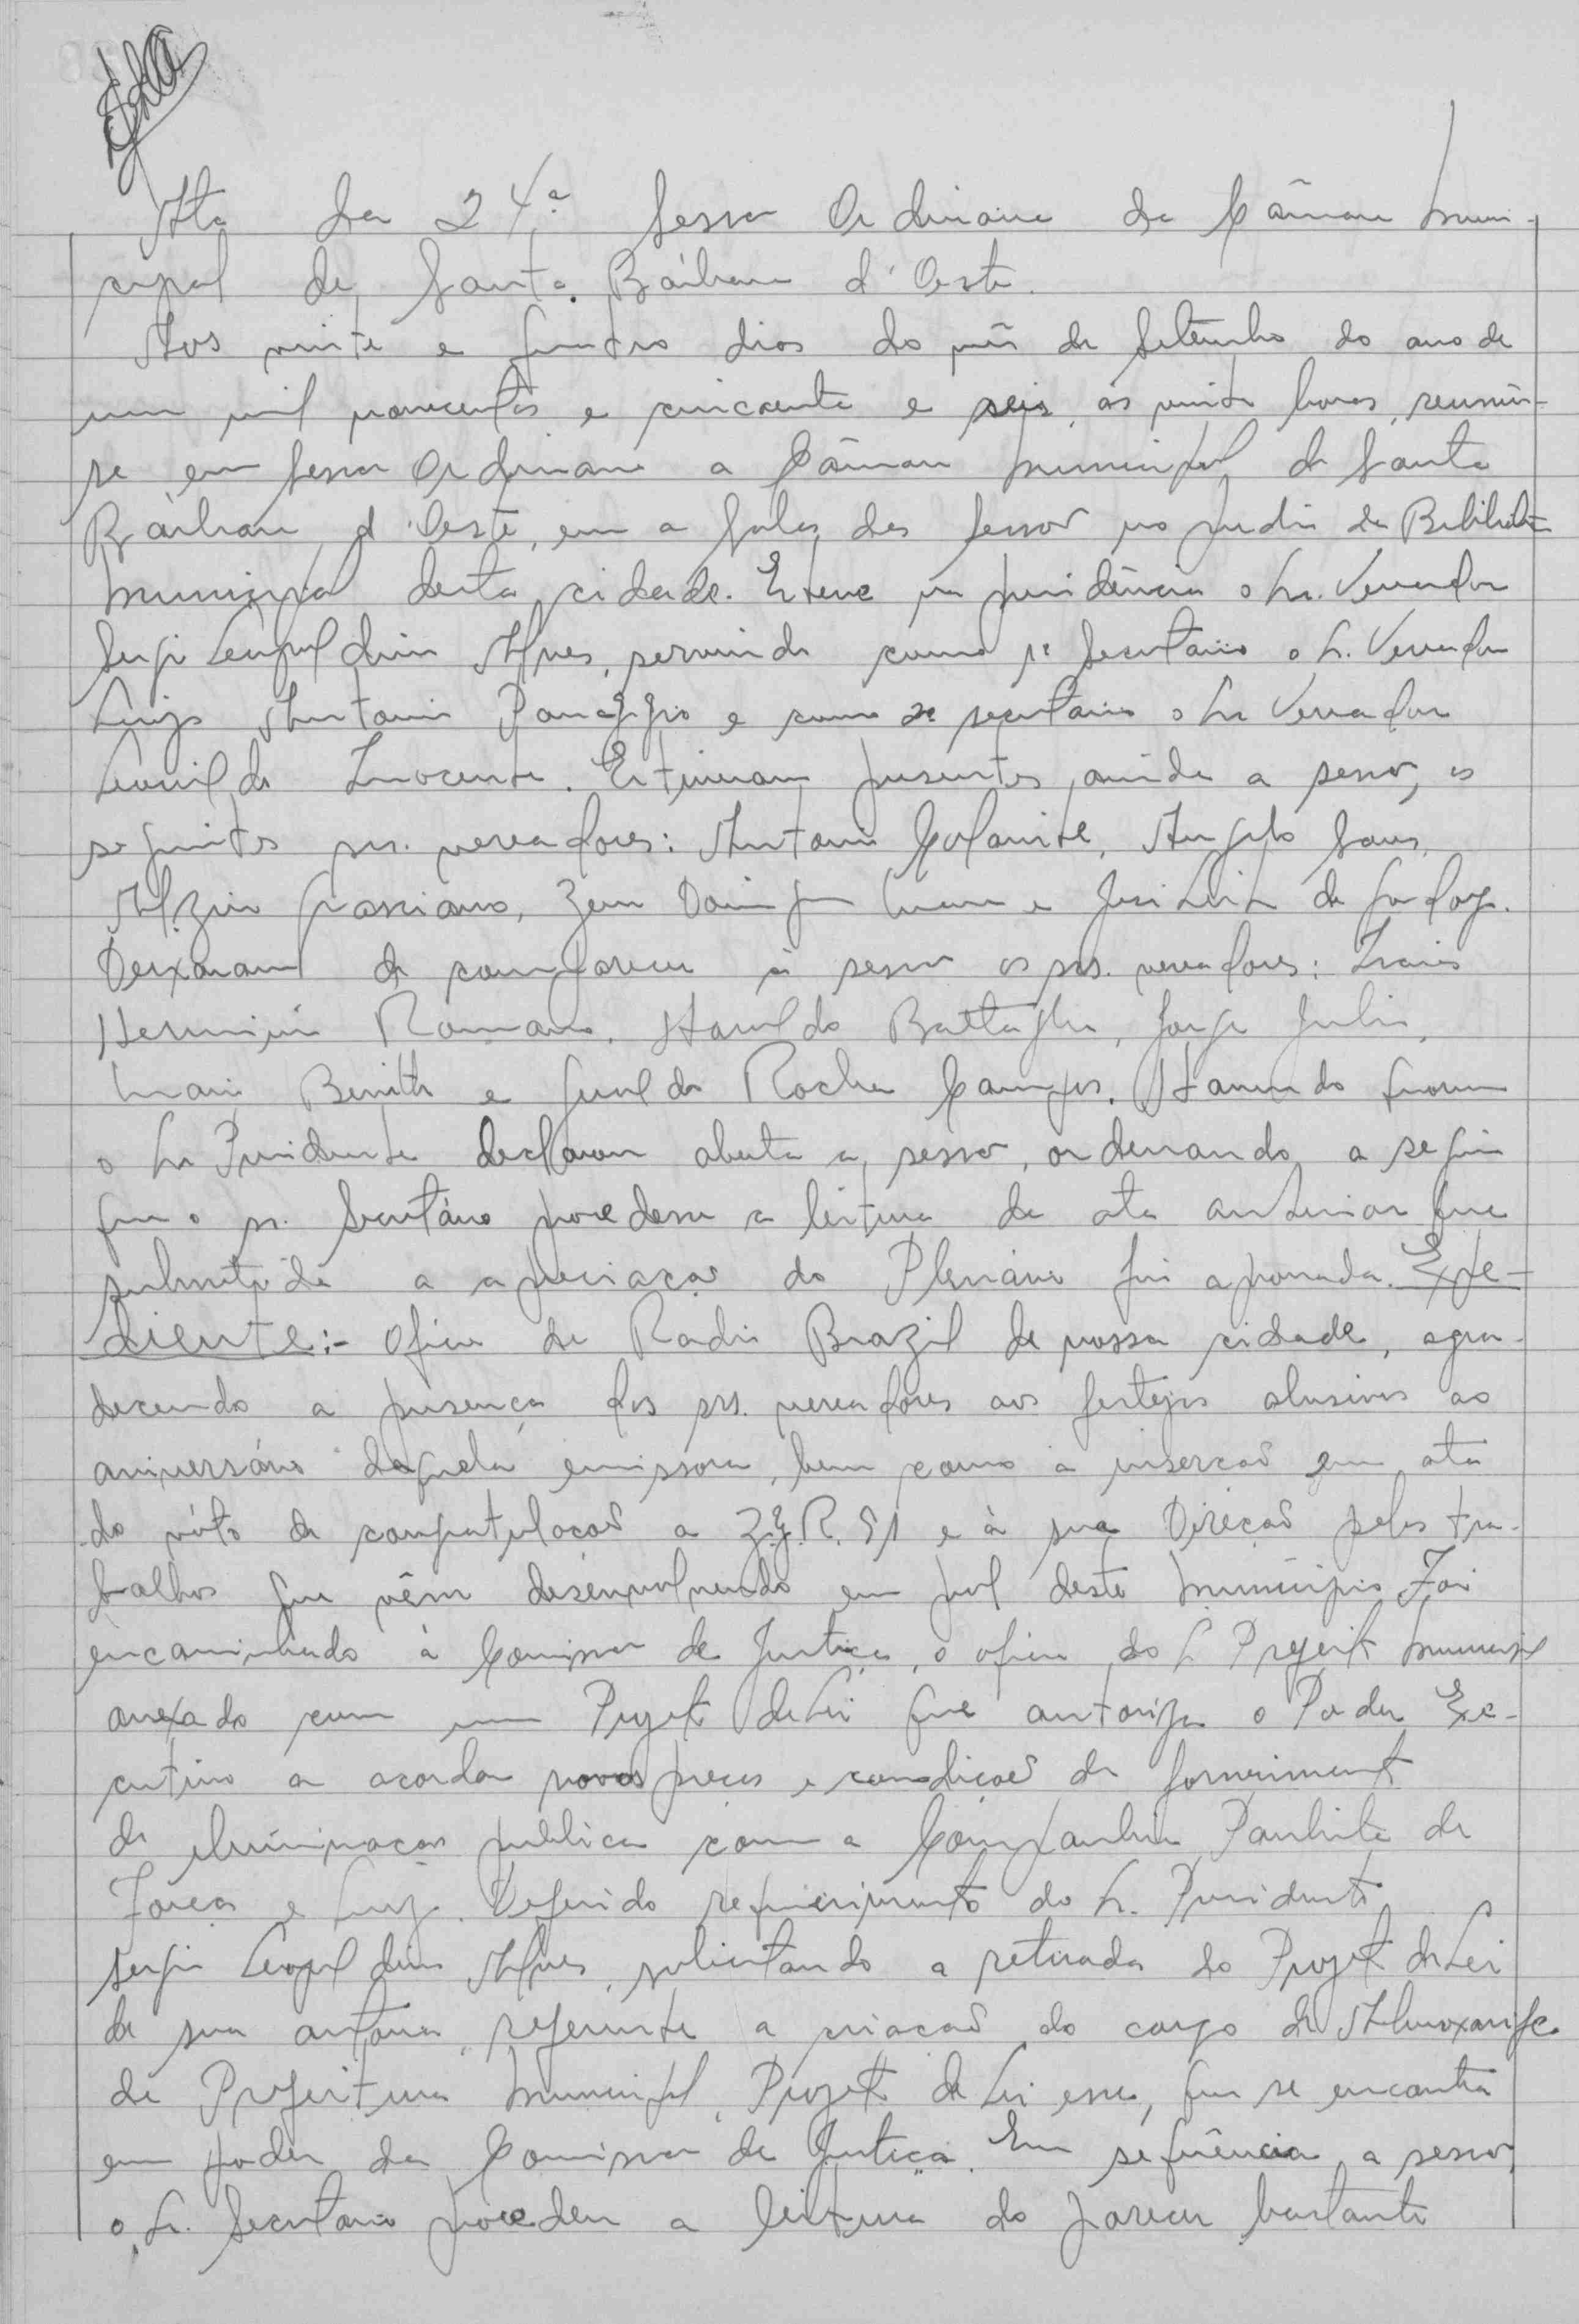 Ata da 24ª Sessão Ordinária da Câmara Muni-
cipal de Santa Bárbara d'Oeste.
Aos vinte e quatro dias do mês de Setembro do ano de
um mil novecentos e cincoenta e seis, ás vinte horas, reuniu-
se em Sessão Ordinaria a Câmara Municipal de Santa
Bárbara d'Oeste, em a Sala das Sessões no predio da Biblioteca
Municipal desta cidade. Esteve na presidência o Sr. Vereador
Sergio Leopoldino Alves, servindo como 1º Secretário o Sr. Vereador
Luiz Antonio Panaggio e como 2º secretario o Sr Vereador
Leonildo Inocente. Estiveram presentes, ainda a sessão, os
seguintes srs. vereadores: Antonio Colanite, Angelo Sans,
Alziro Grassiano, Domingos e José Leite de Godoy.
Deixaram de comparecer à sessão os srs. vereadores: Isaias
Herminio Romano, Haroldo Battaglia, Jorge Julio,
Mario Benitto e Geraldo Rocha Campos. Havendo quorum
o Sr Presidente declarou aberta a sessão, ordenando a seguir
que o sr. Secretário procedesse a leitura da ata anterior que
submetida a apreciação do Plenario foi aprovada. Expe-
diente:- Oficio da Radio Brazil de nossa cidade, agra-
decendo a presença dos srs. vereadores aos festejos alusivos ao
aniversário daquela emissora, bem como a inserção em ata
do vóto de congratulação a Z.Y.R. 51 e à sua Direção pelos tra-
balhos que vêm desenvolvendo em prol deste Municipio. Foi
encaminhado à Comissão de Justiça, o oficio do Sr Prefeito Municipal
anexado com um Projeto de Lei que autoriza o Poder Exe-
cutivo a acordar novos preços e condições de fornecimento
de iluminação pública com a Companhia Paulista de
Força e Luz. Deferido requerimento do Sr. Presidente
Sergio Leopoldino Alves, solicitando a retirada do Projeto de Lei
de sua autoria, referente a criação do cargo de Almoxarife
da Prefeitura Municipal, Projeto de Lei esse, que se encontra
em poder da Comissão de Justiça. Em sequência a sessão,
o Sr. Secretario procedeu a leitura do parecer bastante